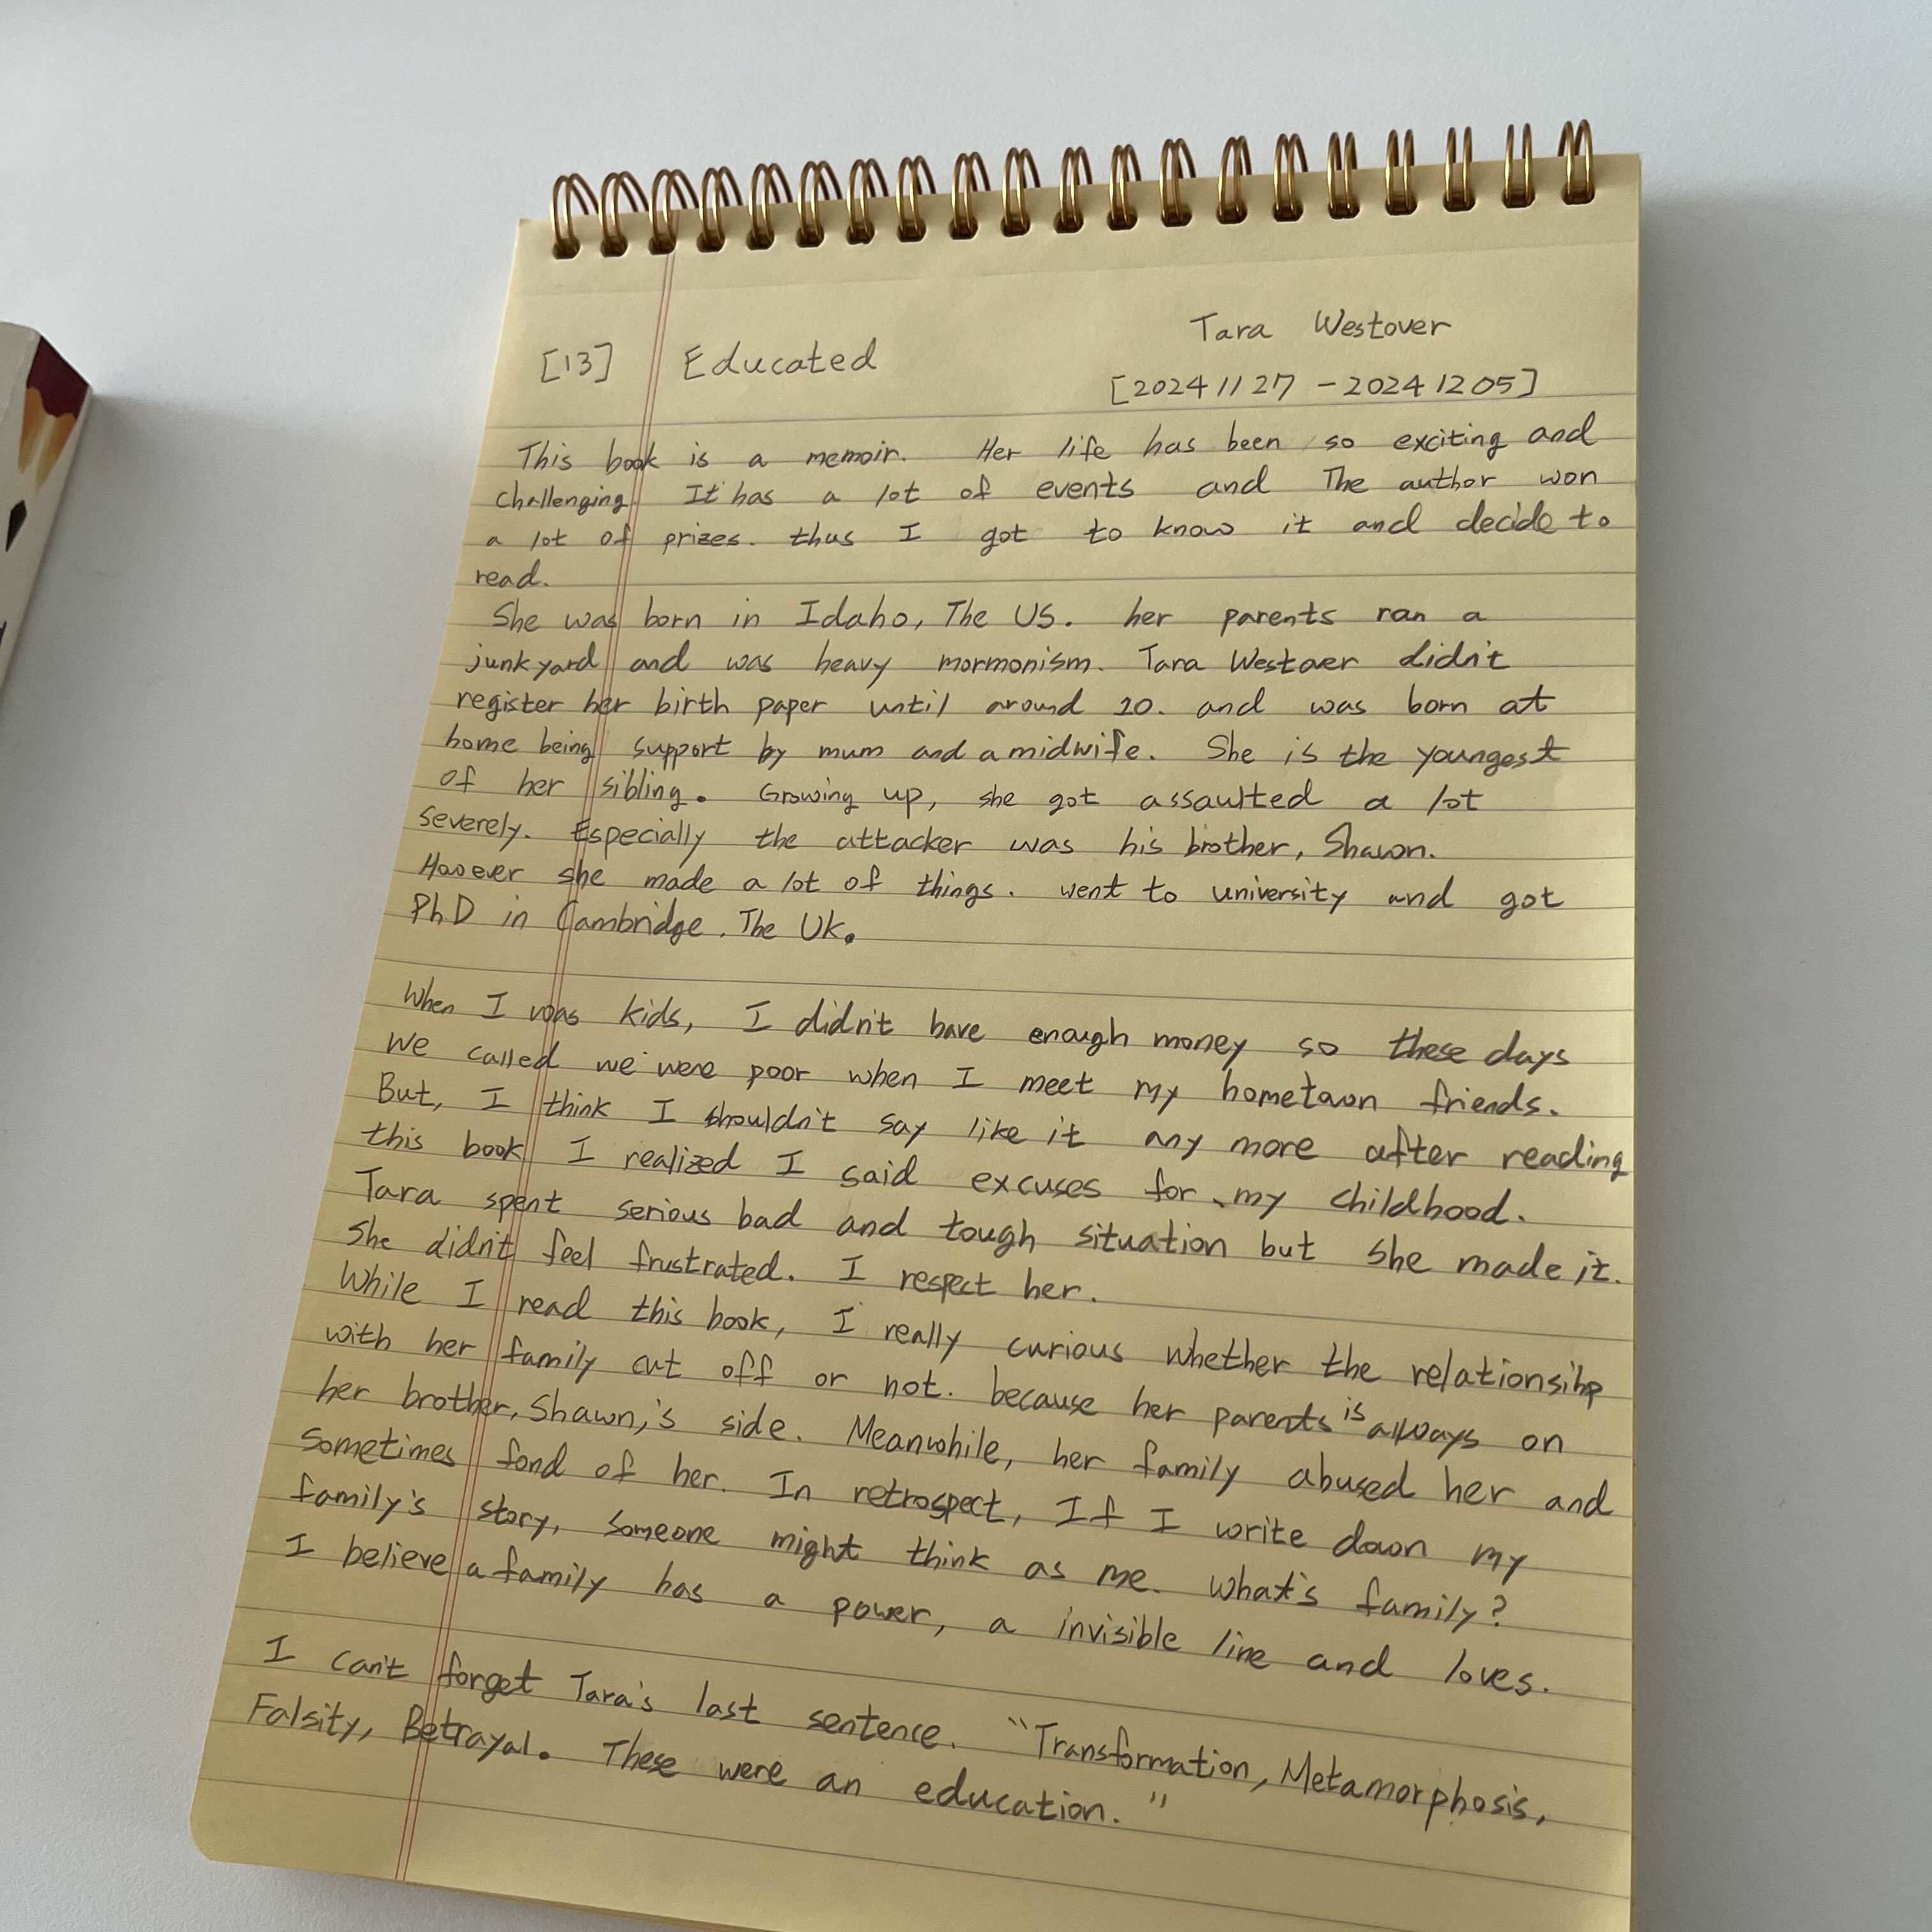 [13] Educated Tara Westover
[2024 11 27 - 2024 12 05]
This book is a memoir. Her life has been so exciting and
challenging. It has a lot of events and The author won
a lot of prizes. thus I got to know it and decide to
read.
She was born in Idaho, The US. her parents ran a
junkyard and was heavy mormonism. Tara Westoer didn't
register her birth paper until around 20. and was born at
home being support by mum and a midwife. She is the youngest
of her sibling. Growing up, she got assaulted a lot
severely. Especially the attacker was his brother, Shawn.
However she made a lot of things. went to university and got
PhD in Cambridge. The UK.
When I was kids, I didn't have enough money so these days
we called we were poor when I meet my hometown friends.
But, I think I shouldn't say like it any more after reading
this book I realized I said excuses for my childhood.
Tara spent serious bad and tough situation but she made it.
She didn't feel frustrated. I respect her.
While I read this book, I really curious whether the relationsihp
with her family cut off or not. because her parents is always on
her brother, Shawn,'s side. Meanwhile, her family abused her and
sometimes fond of her. In retrospect, If I write down my
family's story, someone might think as me. what's family?
I believe a family has a power, a invisible line and loves.
I can't forget Tara's last sentence. "Transformation, Metamorphosis,
Falsity, Betrayal. These were an education."